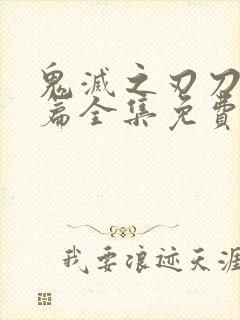 鬼滅之刃刀
篇全集免費
我要浪迹天涯